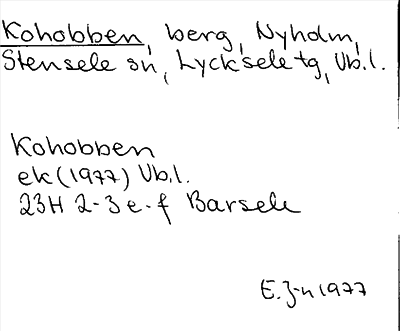 Kohobben, berg, Nyholm,
Stensele sn, Lycksele tg, Vb.l.
Kohobben
ek (1977) Vb.l.
23H 2-3 e-f Barsele
E. J-n 1977